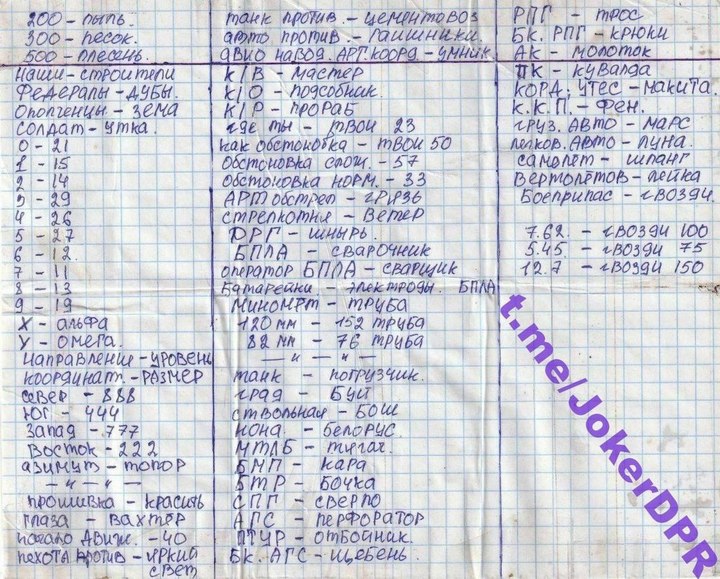 200 - пыль.
300 - песок.
500 - плесень.
наши - строители
Федералы - дубы.
Ополченцы - зема
солдат - утка.
0 - 21
1 - 15
2 - 14
3 - 29
4 - 26
5 - 27
6 - 12.
7 - 11
8 - 13
9 - 19
X - альфа
У - омега.
направление - уровень
координат. - размер
север - 888
Юг. - 444
Запад - 777
Восток - 222
азимут - топор
— " — " —
прошивка - красить
глаза - вахтёр
начало движ. - 40
пехота против - яркий
свет
танк против. - цементовоз
авто против - гаишники.
авио навод. арт. коорд. - умник.
к/в - мастер
к/о - подсобник.
к/р - прораб
где ты - твои 23
как обстоновка - твои 50
обстоновка слож. - 57
обстоновка норм. - 33
АРТ обстрел - грязь
стрелкотня - ветер
ДРГ - шнырь.
БПЛА - сварочник
оператор БПЛА - сварщик
батарейки - электроды. БПЛА
миномёт - труба
120 мм - 152 труба
82 мм - 76 труба
— " — " —
танк - погрузчик.
град - буй
ствольная - бош
нона - белорус.
МТЛБ - тягач.
БМП - кара
БТР - бочка
СПГ - сверло
АГС - перфоратор
ПТУР - отбойник.
Бк. АГС - щебень.
РПГ - трос
Бк. РПГ - крюки
АК - молоток
ПК - кувалда
КОРД; УТЕС - макита.
К.К.П. - фен.
груз. авто - марс
легков. авто - луна.
самолет - шланг
вертолетов - лейка
Боеприпас - гвозди.
7.62. - гвозди 100
5.45. - гвозди 75
12.7 - гвозди 150
t.me/JokerDPR